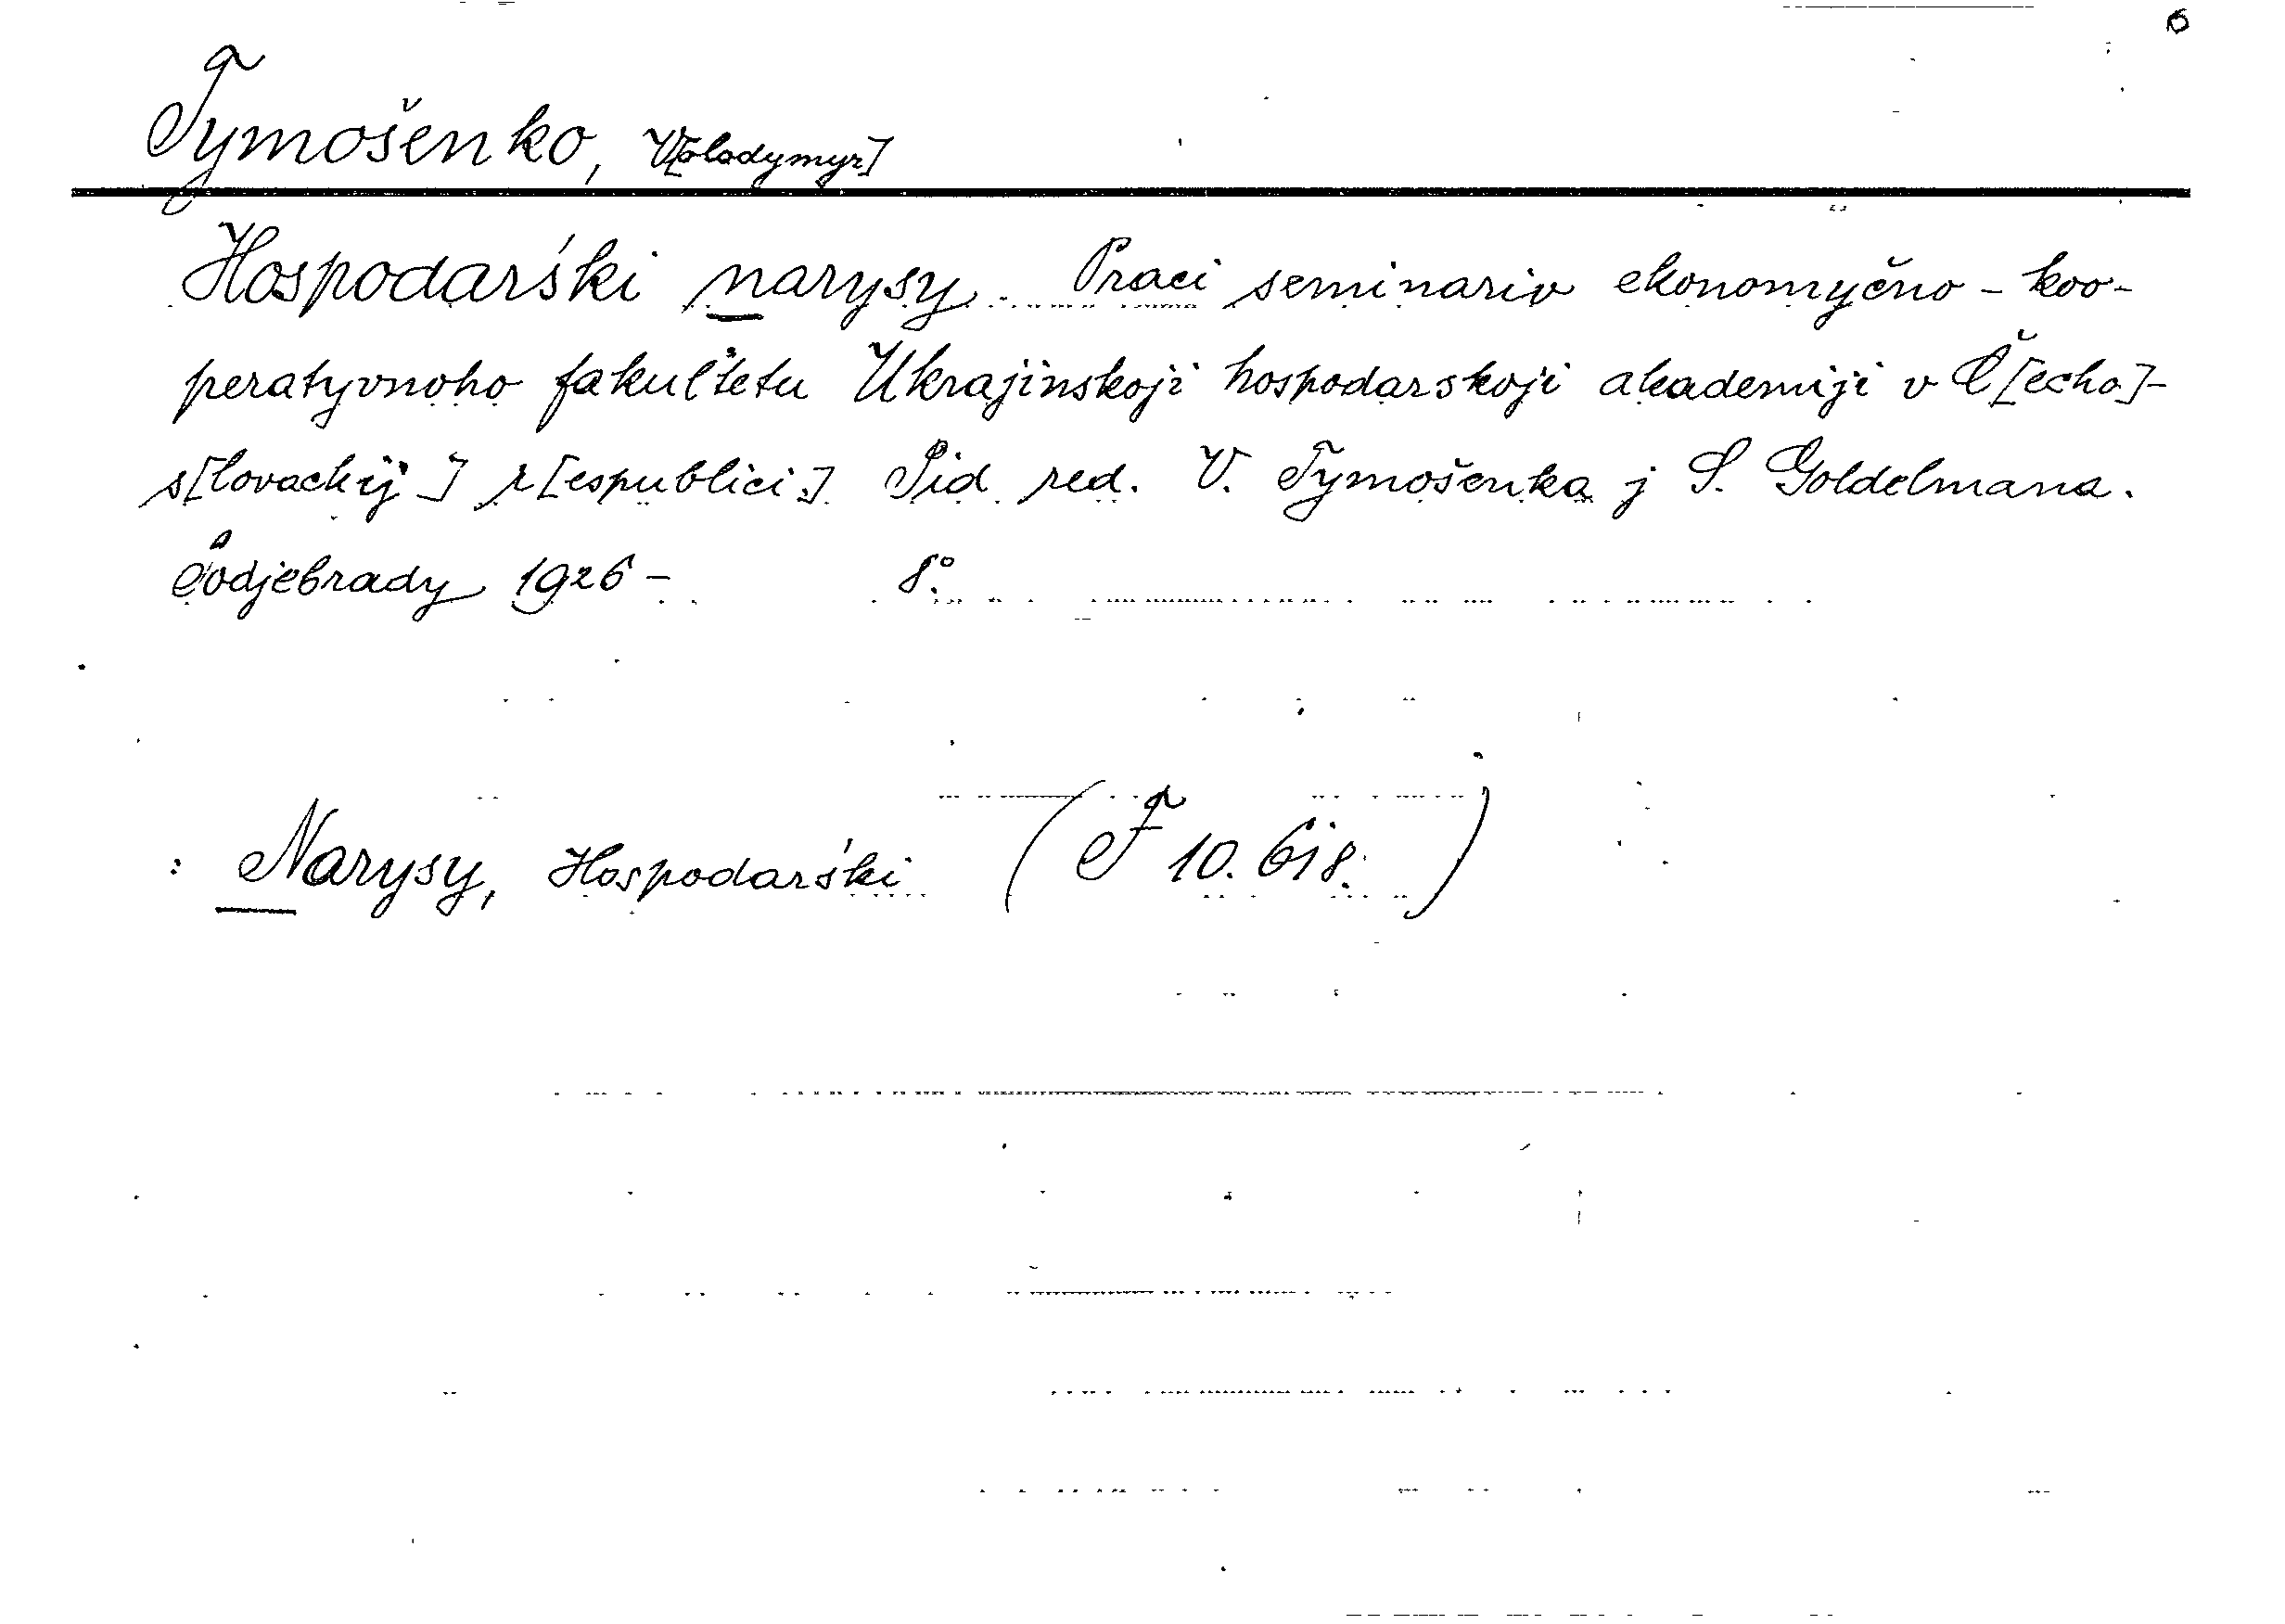 6
Tymošenko, V[olodymyr]
Hospodarśki narysy. Praci seminariv ekonomyčno-koo-
peratyvnoho fakuĺtetu Ukrajinskoji hospodarskoji akademiji v Č[echo]-
s[lovackij] r[espublici]. Pid red. V. Tymošenka j S. Goldelmana.
Podjebrady 1926- 8°.
: Narysy, Hospodarśki (F 10.618.)